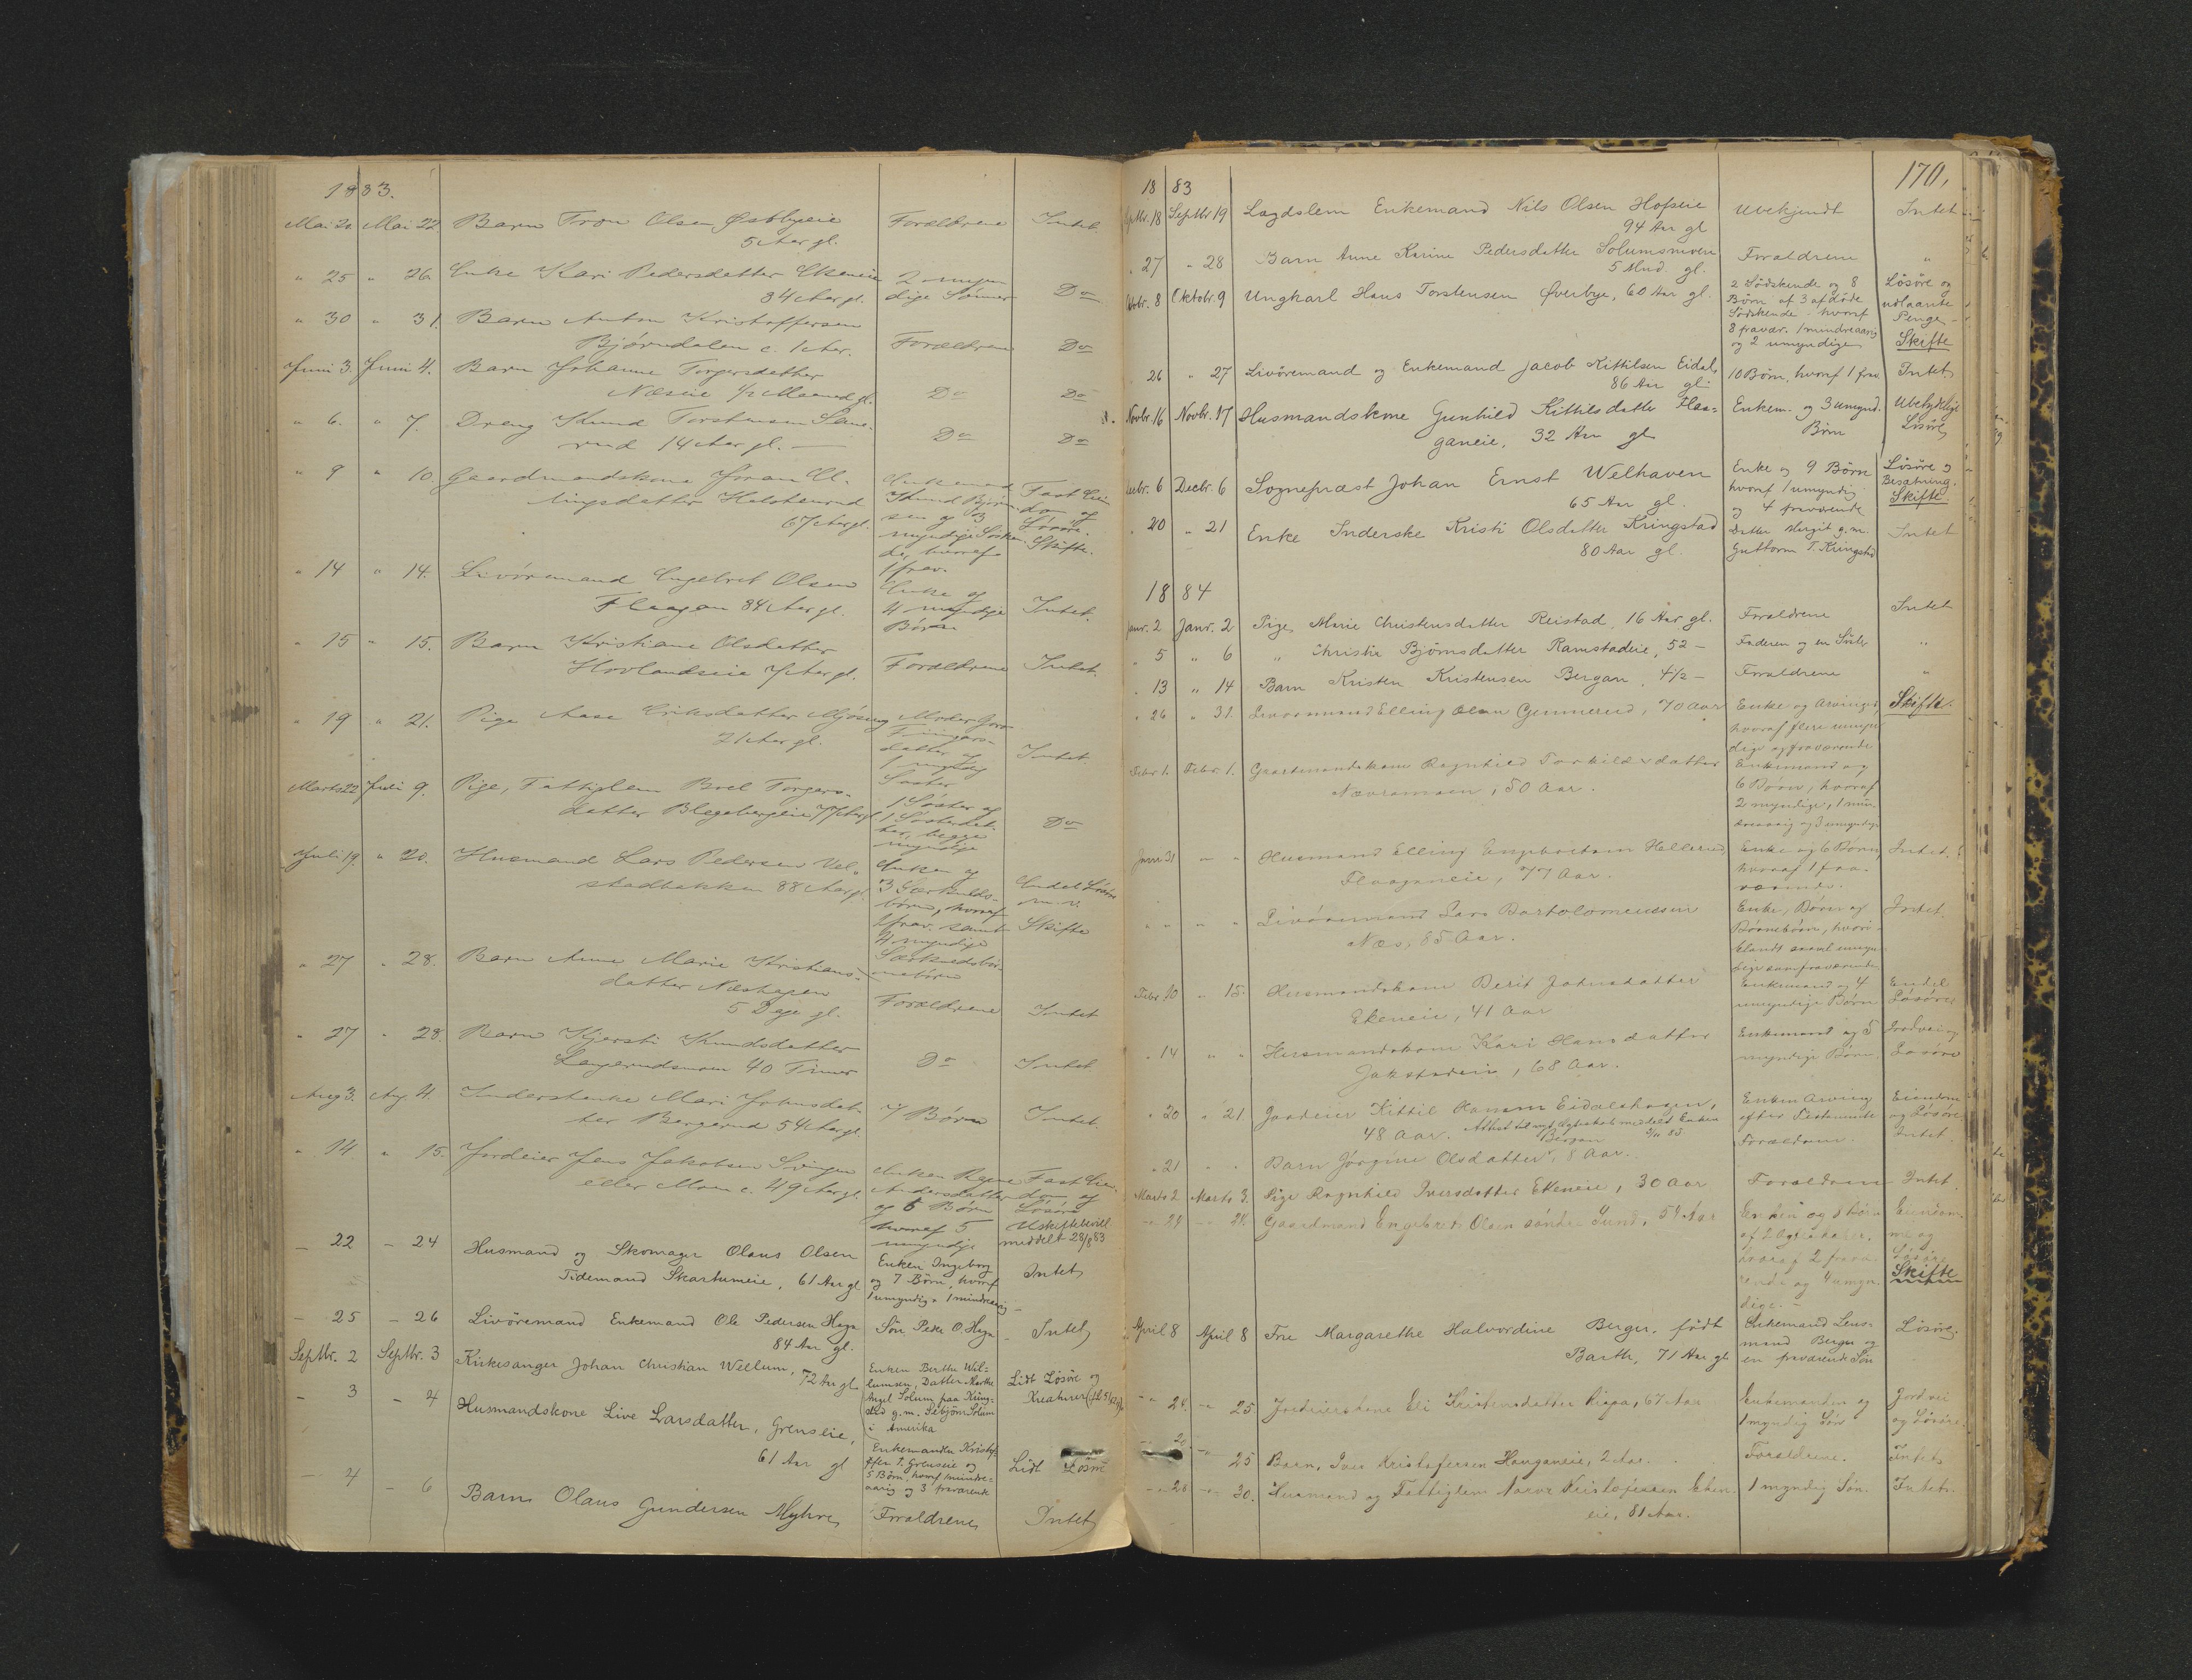 1883.
Mai 20 Mai 22. Barn Tron Olsen Østbyeie Forældrene Intet.
5 Aar gl.
" 25 " 26 Enke Kari Pedersdatter Ekeneie 2 myn-
84 Aar gl. dige Sönner Do
" 30 " 31. Barn Anton Kristoffersen
Bjørndalen c. 1 Aar. Forældrene Do
Juni 3. Juni 4. Barn Johanne Torgersdatter
Næseie 1/2 Maaned gl. Do Do
" 6. " 7. Dreng Knud Torstensen
rud 14 Aar gl. — Do Do
" 9 " 10. Gaardmandskone Joran El-
lingsdatter
67 Aar gl.
Enkemand
Knud Bjørn-
sen og 3
myndige Søsken-
de, hvoraf
1 frav.
Fast Eien-
dom og
Løsøre.
Skifte.
" 14 " 14. Livöremand Engebret Olsen
Flaagan 84 Aar gl.
Enke og
4 myndige
Børn
Intet.
" 15 " 15. Barn Kristiane Olsdatter
Hovlandseie 7 Aar gl. Forældrene Intet.
" 19 " 21. Pige Aase Eriksdatter Mjösing
21 Aar gl.
Moder Goro
datter og
1 myndig
Søster
Intet.
Marts 22 Juli 9. Pige, Fattiglem Boel Torgers-
datter Blegebergeie 77 Aar gl.
1 Søster og
1 Søsterdat-
ter, begge
myndige
Do
Juli 19. " 20. Husmand Lars Pedersen Vel-
stadbakken 88 Aar gl.
Enken og
3 Særkulds-
børn, hvoraf
1 frav. samt
4 myndige
Særkuldsbör-
nebörn
Endel Løsøre
m. v.
Skifte
" 27 " 28. Barn Anne Marie Kristians-
datter Næshagen
5 Dage gl. Forældrene Intet
" 27 " 28. Barn Kjersti Knudsdatter
Lagerudsmoen 40 Timer Do Intet
Aug 3. Aug 4. Inderstenke Mari Johnsdat-
ter Bergerud 54 Aar gl. 7 Børn Intet.
" 14 " 15. Jordeier Jens Jakobsen Svingen
eller Moen c. 49 Aar gl.
Enken
Andersdatter
og 6 Børn
hvoraf 5
umyndige
Fast Eien-
dom og
Løsøre
Uskiftebevill.
meddelt 28/8 83
— 22 — 24 Husmand og Skomager Olaus Olsen
Tidemand Skartumeie, 61 Aar gl
Enken Ingeborg
og 7 Börn, hvoraf
1 umyndig, 1 mindreaarig —
Intet
— 25 — 26 Livöremand Enkemand Ole Pedersen Haga
84 Aar gl. Sön Peder O. Haga — Intet
Septbr. 2 Septbr. 3 Kirkesanger Johan Christian Wellum,
72 Aar gl
Enken Berthe Wel-
lumsen, Datter Marthe
Angel Solum paa Kring-
stad g. m. Sebjörn Solum
i Amerika
Lidt Lösöre og
Kreaturer
— 3 — 4 Husmandskone Live Larsdatter, Grenseie,
61 Aar gl
Enkemanden Kristof-
fer T. Grenseie og
5 Börn, hvoraf 1 mindre-
aarig og 3 fraværende
Lidt Lösöre
— 4 — 6 Barn Olaus Gundersen Myhre Forældrene Intet
170.
1883
Septbr. 18 Septbr 19 Lægdslem Enkemand Nils Olsen Hofseie
94 Aar gl Ubekjendt Intet
" 27 " 28 Barn Anne Karine Pedersdatter Solumsmoen
5 Mnd. gl. Forældrene "
Oktobr. 8 Oktobr. 9 Ungkarl Hans Torstensen Øverbye, 60 Aar gl.
2 Södskende og 8
Börn af 3 afdöde
Södskende hvoraf
8 fravær. 1 mindreaarig
og 2 umyndige
Lösöre og
udlaante
Penge —
Skifte
" 26 " 27 Livöremand og Enkemand Jacob Kittilsen Eidal,
86 Aar gl. 10 Börn, hvoraf 1 frav Intet
Novbr. 16 Novbr. 17 Husmandskone Gunhild Kittilsdatter Flaa-
ganeie, 32 Aar gl
Enkem. og 3 umynd.
Börn
Ubetydeligt
Lösöre
Decbr. 6 Decbr. 6 Sognepræst Johan Ernst Welhaven
65 Aar gl.
Enke og 9 Börn
hvoraf 1 umyndig
og 4 fraværende
Lösöre og
Besætning.
Skifte.
" 20 " 21 Enke Inderske Kristi Olsdatter Kringstad
80 Aar gl.
Datter Margit g. m.
Guttorm T. Kringstad
Intet
1884
Janr. 2 Janr. 2 Pige Marie Christensdatter Reistad, 16 Aar gl. Forældrene Intet
" 5 " 6 " Christie Björnsdatter Ramstadeie, 52 — Faderen og en Söster "
" 13 " 14 Barn Kristen Kristensen Bergan, 4 1/2 — Forældrene "
" 26 " 31. Livøremand Elling Olsen Gunnerud, 70 Aar
Enke og Arvinger,
hvoraf flere umyn-
dige og fraværende
Skifte.
Febr. 1. Febr. 1. Gaardmandskone Ragnhild Torkildsdatter
Nævramoen, 50 Aar.
Enkemand og
6 Börn, hvoraf
2 myndige, 1 min-
dreaarig og 3 umyndige
Janr 31 " " Husmand Elling Engebretsen Hellerud
Flaaganeie, 77 Aar.
Enke og 6 Börn,
hvoraf 1 fra-
værende.
Intet.
" " " " Livöremand Lars Bartolomeussen
Næs, 85 Aar.
Enke, Börn og
Börnebörn, hvori-
blandt saavel umyn-
dige som fraværende
Intet.
Febr. 10 " 15. Husmandskone Berit Johnsdatter
Ekeneie, 41 Aar
Enkemand og 4
umyndige Børn
Endel
Løsøre
" 14 " " Husmandskone Kari Hansdatter
Jakstadeie, 68 Aar.
Enkemand og 5
myndige Børn.
Jordvei og
Løsøre
" 20 " 21. Gaardeier Kittil Hansen Eidalshagen,
48 Aar. Attest til nyt Ægteskab meddelt Enken
Enken Arving
efter Testamente
Eiendom
og Løsøre
" 21 " " Barn Jörgine Olsdatter Bergan, 8 Aar. Forældrene. Intet.
Marts 2 Marts 3. Pige Ragnhild Iversdatter Ekeneie, 30 Aar Forældrene Intet
" 24 " 28. Gaardmand Engebret Olsen søndre Gund, 59 Aar
Enken og 8 børn
af 2 Ægteskaber,
hvoraf 2 fravæ-
rende og 4 umyn-
dige. —
Eiendom-
me og
Løsøre
Skifte
April 8 April 8 Frue Margarethe Halvordine Berger, født
Barth, 71 Aar gl
Enkemand Lens-
mand Berger og
en fraværende Sön
Lösöre.
" 24. " 25 Jordeierskone Eli Kristensdatter Ringa, 67 Aar
Enkemanden og
1 myndig Sön
Jordvei
og Lösöre.
" 20 " 25 Barn, Iver Kristofersen Hauganeie, 2 Aar. Forældrene. Intet
" 28 " 30. Husmand og Fattiglem Narve Kristofersen Eken-
eie, 81 Aar. 1 myndig Sön. Intet.